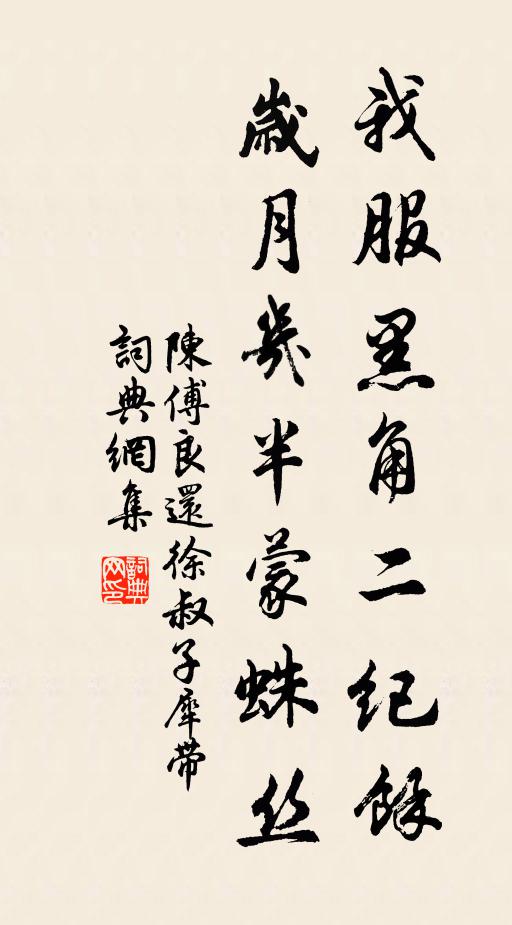 我服黑角二纪餘
歲月幾半蒙蛛丝
陳傅良還徐叔子犀帶
詞典網集
詞典网印